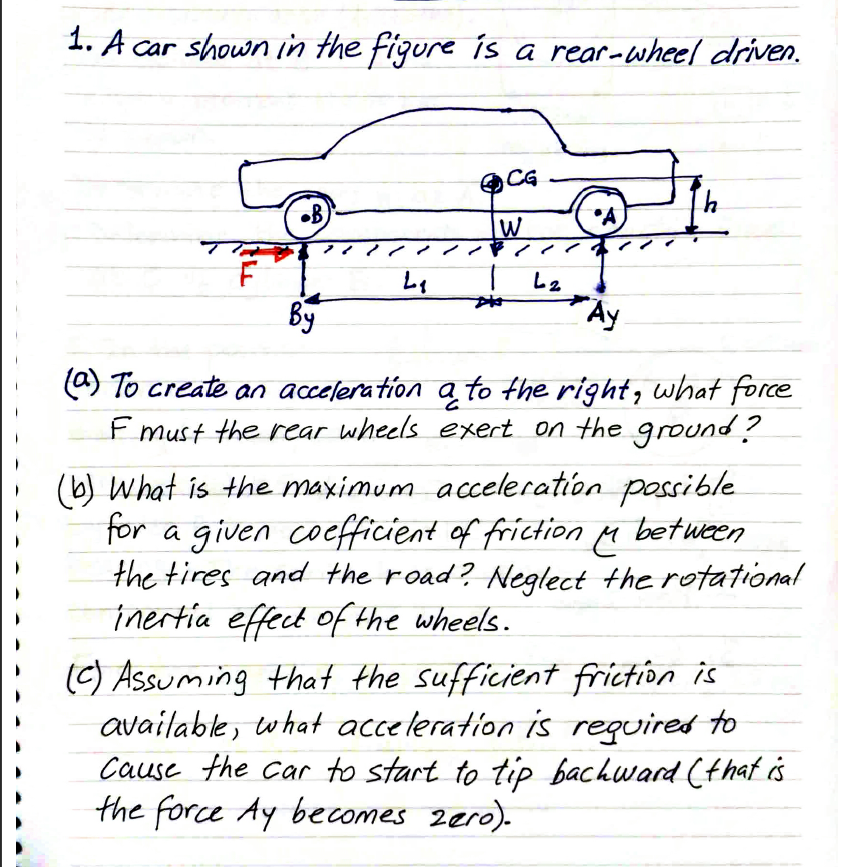 1. A car shown in the figure is a rear-wheel driven.
CG
B
A
h
W
F
L1
L2
By
Ay
(a) To create an acceleration ac to the right, what force
F must the rear wheels exert on the ground?
(b) What is the maximum acceleration possible
for a given coefficient of friction μ between
the tires and the road? Neglect the rotational
inertia effect of the wheels.
(c) Assuming that the sufficient friction is
available, what acceleration is required to
cause the car to start to tip backward (that is
the force Ay becomes zero).